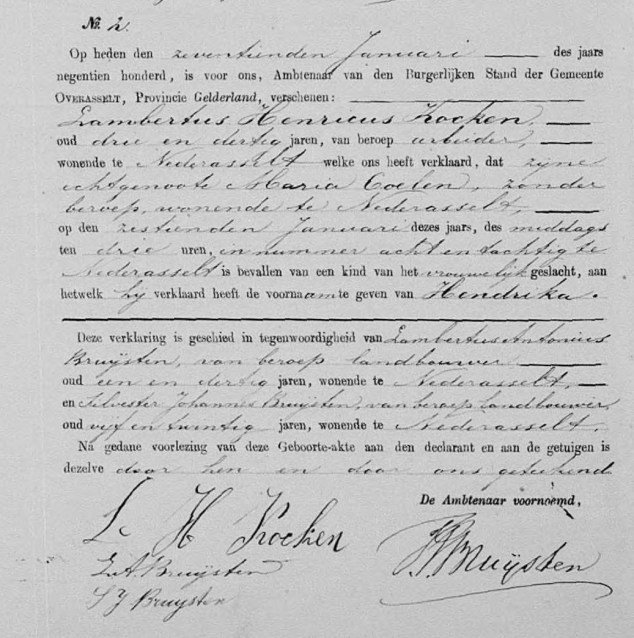 No. 2.
Op heden den zeventienden Januari des jaars
negentien honderd, is voor ons, Ambtenaar van den Burgerlijken Stand der Gemeente
OVERASSELT, Provincie Gelderland, verschenen:
Lambertus Henricus Kocken,
oud drie en dertig jaren, van beroep arbeider,
wonende te Nederasselt welke ons heeft verklaard, dat zijne
echtgenoote Maria Coelen, zonder
beroep, wonende te Nederasselt,
op den zestienden Januari dezes jaars, des middags
ten drie uren, in nummer acht en tachtig te
Nederasselt is bevallen van een kind van het vrouwelijk geslacht, aan
hetwelk hij verklaard heeft de voornaam te geven van Hendrika.
Deze verklaring is geschied in tegenwoordigheid van Lambertus Antonius
Bruijsten, van beroep landbouwer,
oud een en dertig jaren, wonende te Nederasselt,
en Silvester Johannes Bruijsten, van beroep landbouwer,
oud vijf en twintig jaren, wonende te Nederasselt,
Na gedane voorlezing van deze Geboorte-akte aan den declarant en aan de getuigen is
dezelve door hen en door ons geteekend
De Ambtenaar voornoemd,
L H Kocken
L.A. Bruijsten
S J Bruijsten
Bruijsten